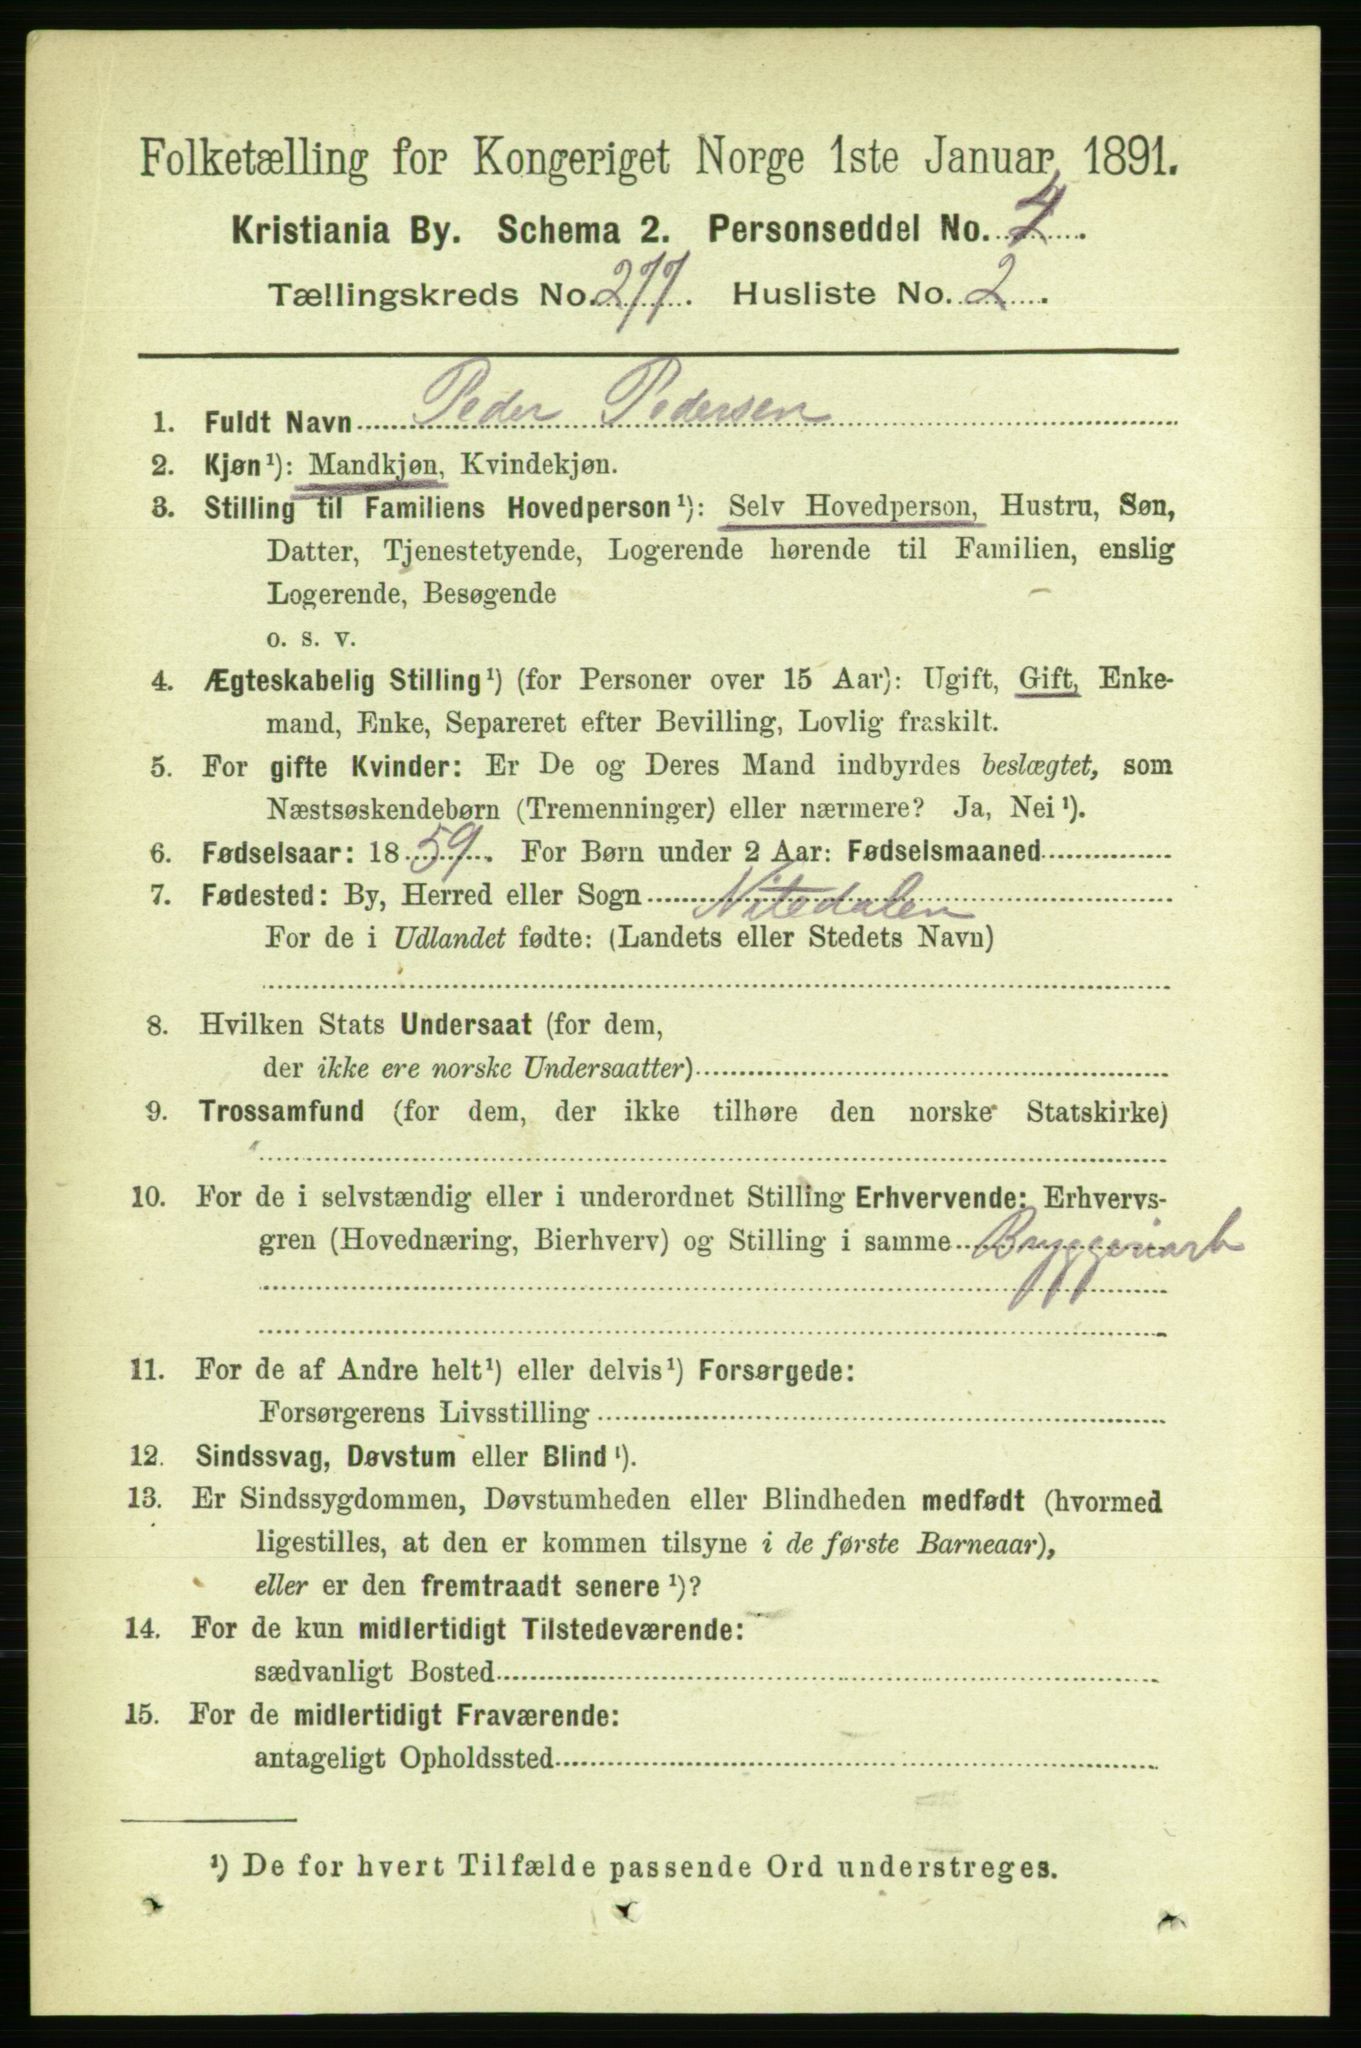 Folketælling for Kongeriget Norge 1ste Januar 1891.
Kristiania By. Schema 2. Personseddel No. 4.
Tællingskreds No. 277. Husliste No. 2.
1. Fuldt Navn Peder Pedersen
2. Kjøn¹): Mandkjøn, Kvindekjøn.
3. Stilling til Familiens Hovedperson¹): Selv Hovedperson, Hustru, Søn,
Datter, Tjenestetyende, Logerende hørende til Familien, enslig
Logerende, Besøgende
o. s. v.
4. Ægteskabelig Stilling¹) (for Personer over 15 Aar): Ugift, Gift, Enke-
mand, Enke, Separeret efter Bevilling, Lovlig fraskilt.
5. For gifte Kvinder: Er De og Deres Mand indbyrdes beslægtet, som
Næstsøskendebørn (Tremenninger) eller nærmere? Ja, Nei¹).
6. Fødselsaar: 1859. For Børn under 2 Aar: Fødselsmaaned
7. Fødested: By, Herred eller Sogn Nitedalen
For de i Udlandet fødte: (Landets eller Stedets Navn)
8. Hvilken Stats Undersaat (for dem,
der ikke ere norske Undersaatter)
9. Trossamfund (for dem, der ikke tilhøre den norske Statskirke)
10. For de i selvstændig eller i underordnet Stilling Erhvervende: Erhvervs-
gren (Hovednæring, Bierhverv) og Stilling i samme Bryggeriarb
11. For de af Andre helt¹) eller delvis¹) Forsørgede:
Forsørgerens Livsstilling
12. Sindssvag, Døvstum eller Blind¹).
13. Er Sindssygdommen, Døvstumheden eller Blindheden medfødt (hvormed
ligestilles, at den er kommen tilsyne i de første Barneaar),
eller er den fremtraadt senere¹)?
14. For de kun midlertidigt Tilstedeværende:
sædvanligt Bosted
15. For de midlertidigt Fraværende:
antageligt Opholdssted
¹) De for hvert Tilfælde passende Ord understreges.